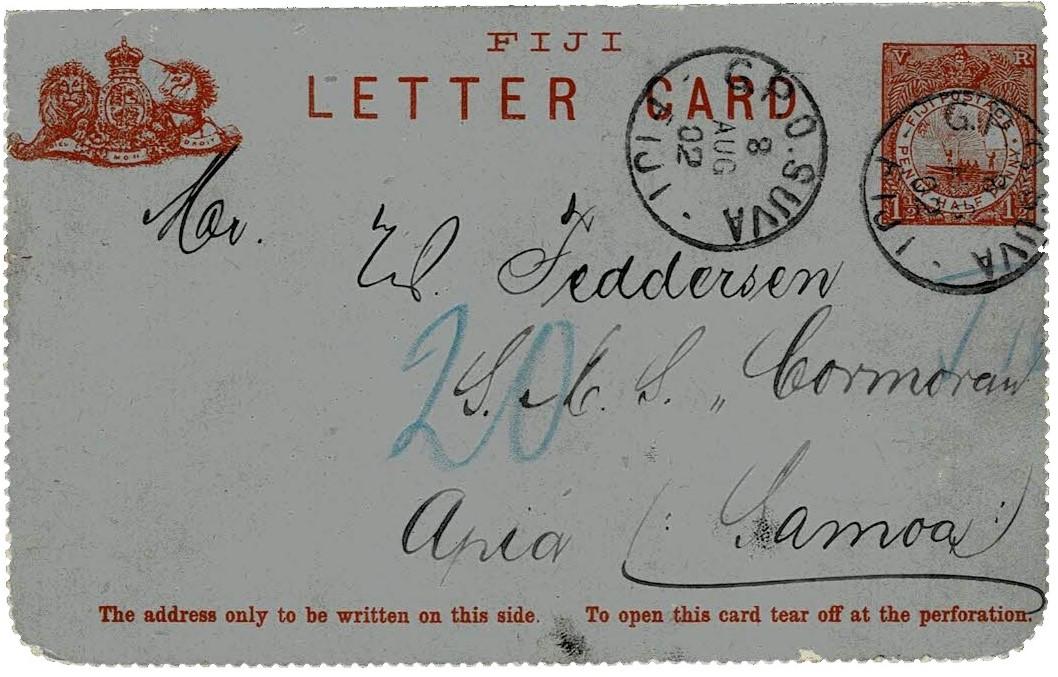 FIJI
LETTER CARD
V R
FIJI POSTAGE
PENNY HALF PENNY
1½ 1½
MON DROIT
G.P.O. SUVA · FIJI ·
8
AUG
02
Mr. W. Feddersen
20
S. M. S. „ Cormoran
Apia (: Samoa :)
The address only to be written on this side. To open this card tear off at the perforation.